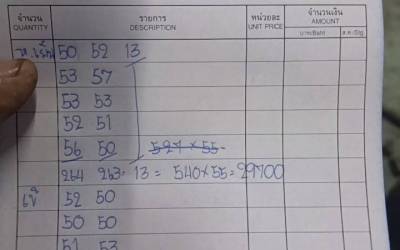 จำนวน รายการ หน่วยละ จำนวนเงิน
QUANTITY DESCRIPTION UNIT PRICE AMOUNT
บาท/Baht ส.ต./Stg.
50 52 13
53 57
53 53
52 51
56 50 527 × 55
264 263 = 13 = 540 × 55 = 29700
52 50
50 50
51 53